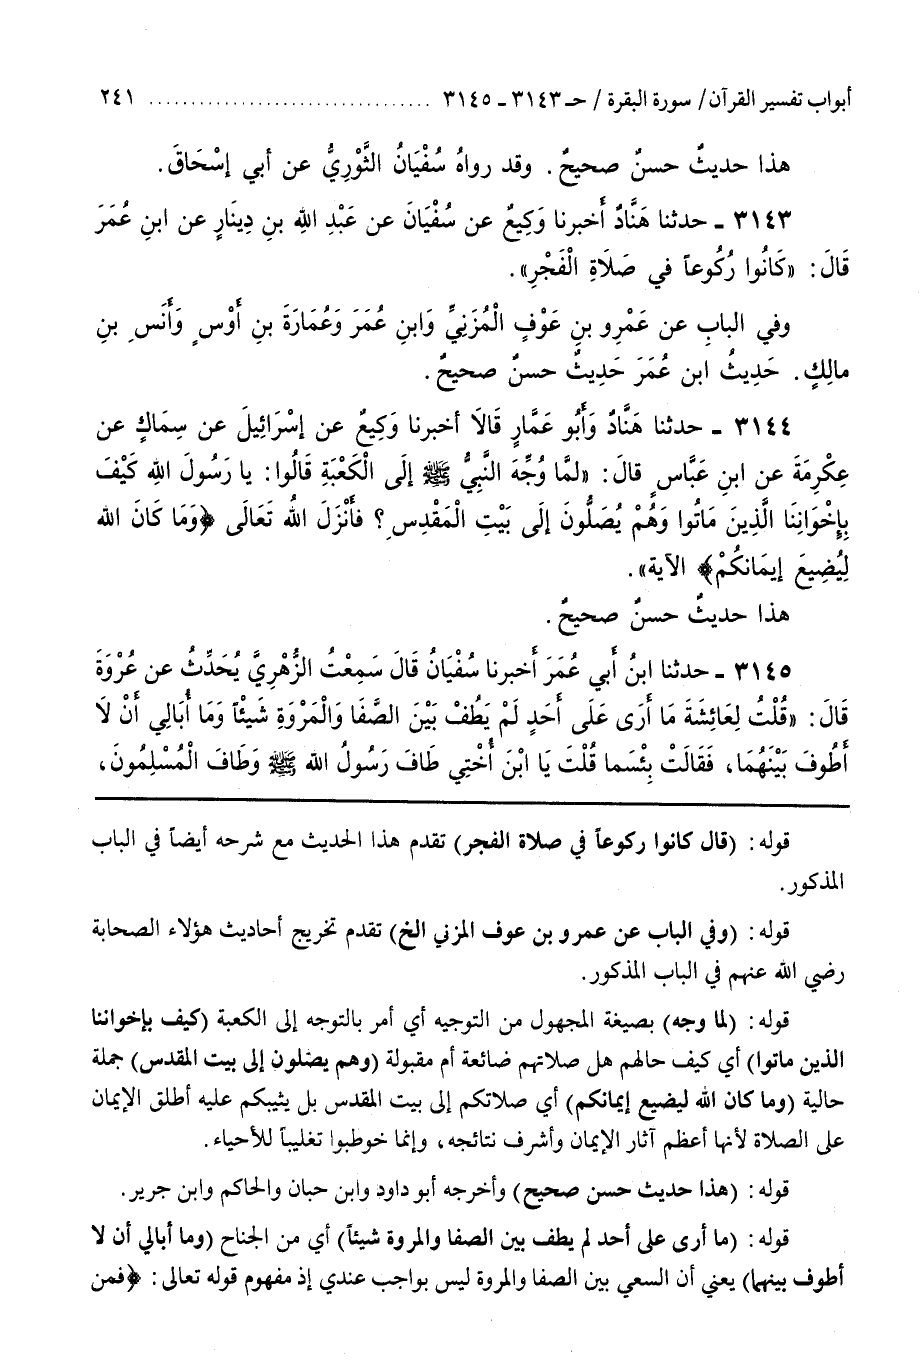 أبواب تفسير القرآن/ سورة البقرة / حـ ٣١٤٣ - ٣١٤٥ ................................. ٢٤١
هذا حديثٌ حسنٌ صحيحٌ. وقد رواهُ سُفْيَانُ الثَّوْرِيُّ عن أبي إسْحَاقَ.
٣١٤٣ ـ حدثنا هَنَّادٌ أَخبرنا وَكِيعٌ عن سُفْيَانَ عن عَبْدِ اللهِ بنِ دِينَارٍ عن ابنِ عُمَرَ
قَالَ: «كَانُوا رُكُوعاً في صَلَاةِ الْفَجْرِ».
وفي البابِ عن عَمْرِو بنِ عَوْفٍ الْمُزَنِيِّ وَابنِ عُمَرَ وَعُمَارَةَ بنِ أَوْسٍ وَأَنَسِ بنِ
مالِكٍ. حَدِيثُ ابن عُمَرَ حَدِيثٌ حسنٌ صحيحٌ.
٣١٤٤ ـ حدثنا هَنَّادٌ وَأَبُو عَمَّارٍ قَالَا أخبرنا وَكِيعٌ عن إسْرَائِيلَ عن سِمَاكٍ عن
عِكْرِمَةَ عن ابنِ عَبَّاسٍ قالَ: «لمَّا وُجِّهَ النَّبِيُّ ﷺ إلَى الْكَعْبَةِ قَالُوا: يا رَسُولَ اللهِ كَيْفَ
بِإِخْوَانِنَا الَّذِينَ مَاتُوا وَهُمْ يُصَلُّونَ إلَى بَيْتِ الْمَقْدِسِ؟ فأَنْزَلَ اللهُ تَعَالَى ﴿وَمَا كَانَ الله
لِيُضِيعَ إيمَانكُمْ﴾ الآية».
هذا حديثٌ حسنٌ صحيحٌ.
٣١٤٥ ـ حدثنا ابنُ أَبي عُمَرَ أَخبرنا سُفْيَانُ قَالَ سَمِعْتُ الزُّهْرِيَّ يُحَدِّثُ عن عُرْوَةَ
قَالَ: «قُلْتُ لِعَائِشَةَ مَا أَرَى عَلَى أَحَدٍ لَمْ يَطُفْ بَيْنَ الصَّفَا وَالْمَرْوَةِ شَيْئاً وَمَا أُبَالِي أَنْ لَا
أَطُوفَ بَيْنَهُمَا، فَقَالَتْ بِئْسَما قُلْتَ يَا ابْنَ أُخْتِي طَافَ رَسُولُ الله ﷺ وَطَافَ الْمُسْلِمُونَ،
قوله: (قال كانوا ركوعاً في صلاة الفجر) تقدم هذا الحديث مع شرحه أيضاً في الباب
المذكور.
قوله: (وفي الباب عن عمرو بن عوف المزني الخ) تقدم تخريج أحاديث هؤلاء الصحابة
رضي الله عنهم في الباب المذكور.
قوله: (لما وجه) بصيغة المجهول من التوجيه أي أمر بالتوجه إلى الكعبة (كيف بإخواننا
الذين ماتوا) أي كيف حالهم هل صلاتهم ضائعة أم مقبولة (وهم يصلون إلى بيت المقدس) جملة
حالية (وما كان الله ليضيع إيمانكم) أي صلاتكم إلى بيت المقدس بل يثيبكم عليه أطلق الإيمان
على الصلاة لأنها أعظم آثار الإيمان وأشرف نتائجه، وإنما خوطبوا تغليباً للأحياء.
قوله: (هذا حديث حسن صحيح) وأخرجه أبو داود وابن حبان والحاكم وابن جرير.
قوله: (ما أرى على أحد لم يطف بين الصفا والمروة شيئاً) أي من الجناح (وما أبالي أن لا
أطوف بينهما) يعني أن السعي بين الصفا والمروة ليس بواجب عندي إذ مفهوم قوله تعالى: ﴿فمن